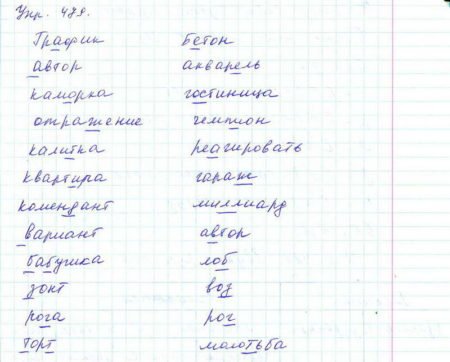 Упр. 479.
График Бетон
автор акварель
каморка гостиница
отражение чемпион
калитка реагировать
квартира гараж
комендант миллиард
вариант автор
бабушка лоб
зонт воз
рога рог
торт молотьба